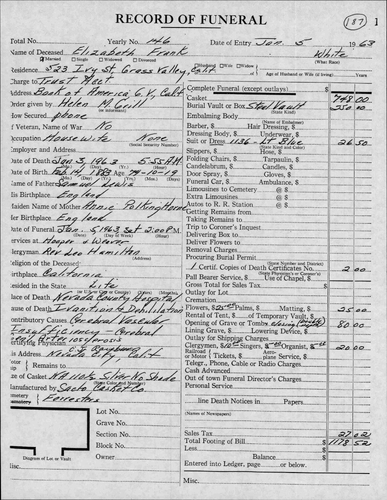 RECORD OF FUNERAL
187
Total No. Yearly No. 146 Date of Entry Jan. 5 1963
Name of Deceased Elizabeth Frank White
Married Single Widowed Divorced Husband Wife Widow (What Race)
Residence 523 Ivy St. Grass Valley, Calif. Age of Husband or Wife (if living) Years
Charge to Trust Acct
Address Bank of America G.V. Calif
Order given by Helen M. Grill
How Secured phone
If Veteran, Name of War No
Occupation Housewife None
(Social Security Number)
Employer and Address
Date of Death Jan 3, 1963 5:55 AM
Date of Birth Feb. 14, 1883 Age 79-10-19
Name of Father Samuel Lewis
His Birthplace England
Maiden Name of Mother Annie
Her Birthplace England
Date of Funeral Jan. 5, 1963 Sat 2:00 P.M.
Services at Hooper & Weaver
Clergyman Rev Leo Hamilton
Religion of the Deceased
Birthplace California
Resided in the State Life
Place of Death Nevada County Hospital
Cause of Death
Contributory Causes Cerebral Vascular
Insufficiency - Cerebral
His Address Nevada City, Calif
Remains to
Size of Casket
Manufactured by Sacto Casket Co.
Cemetery
Lot No.
Grave No.
Section No.
Block No.
Owner
Diagram of Lot or Vault
Complete Funeral (except outlays) $
Casket 748.00
Burial Vault or Box Steel Vault
(Name of Embalmer)
Embalming Body
Barber, $ Hair Dressing, $
Dressing Body, $ Underwear, $
Suit or Dress 1136 - Lt Blue 26.50
(State Kind and Color)
Slippers, $ Hose, $
Folding Chairs, $ Tarpaulin, $
Candelabrum, $ Candles, $
Door Spray, $ Gloves, $
Funeral Car, $ Ambulance, $
Limousines to Cemetery @ $
Extra Limousines @ $
Autos to R. R. Station @ $
Getting Remains from
Taking Remains to
Trip to Coroner's Inquest
Delivering Box to
Deliver Flowers to
Removal Charges
Procuring Burial Permit
(State Number and District)
1 Certif. Copies of Death Certificates No. 2.00
Pall Bearer Service $ Use of Chapel, $
Gross Total for Sales Tax $
Outlay for Lot
Cremation
Flowers, $25.00 Palms, $ Matting, $ 25.00
Rental of Tent, $ of Temporary Vault, $
Opening of Grave or Tomb 80.00
Lining Grave, $ Lowering Device, $
Outlay for Shipping Charges
Clergyman, $10.00 Singers, $ Organist, $ 20.00
Railroad or Motor Tickets, $ Aeroplane Service, $
Telegr., Phone, Cable or Radio Charges
Cash Advanced
Out of town Funeral Director's Charges
Personal Service
line Death Notices in Papers
(Names of Newspapers)
Sales Tax 27.02
Total Footing of Bill $ 1178.52
Less $
Balance $
Entered into Ledger, page or below.
Misc.